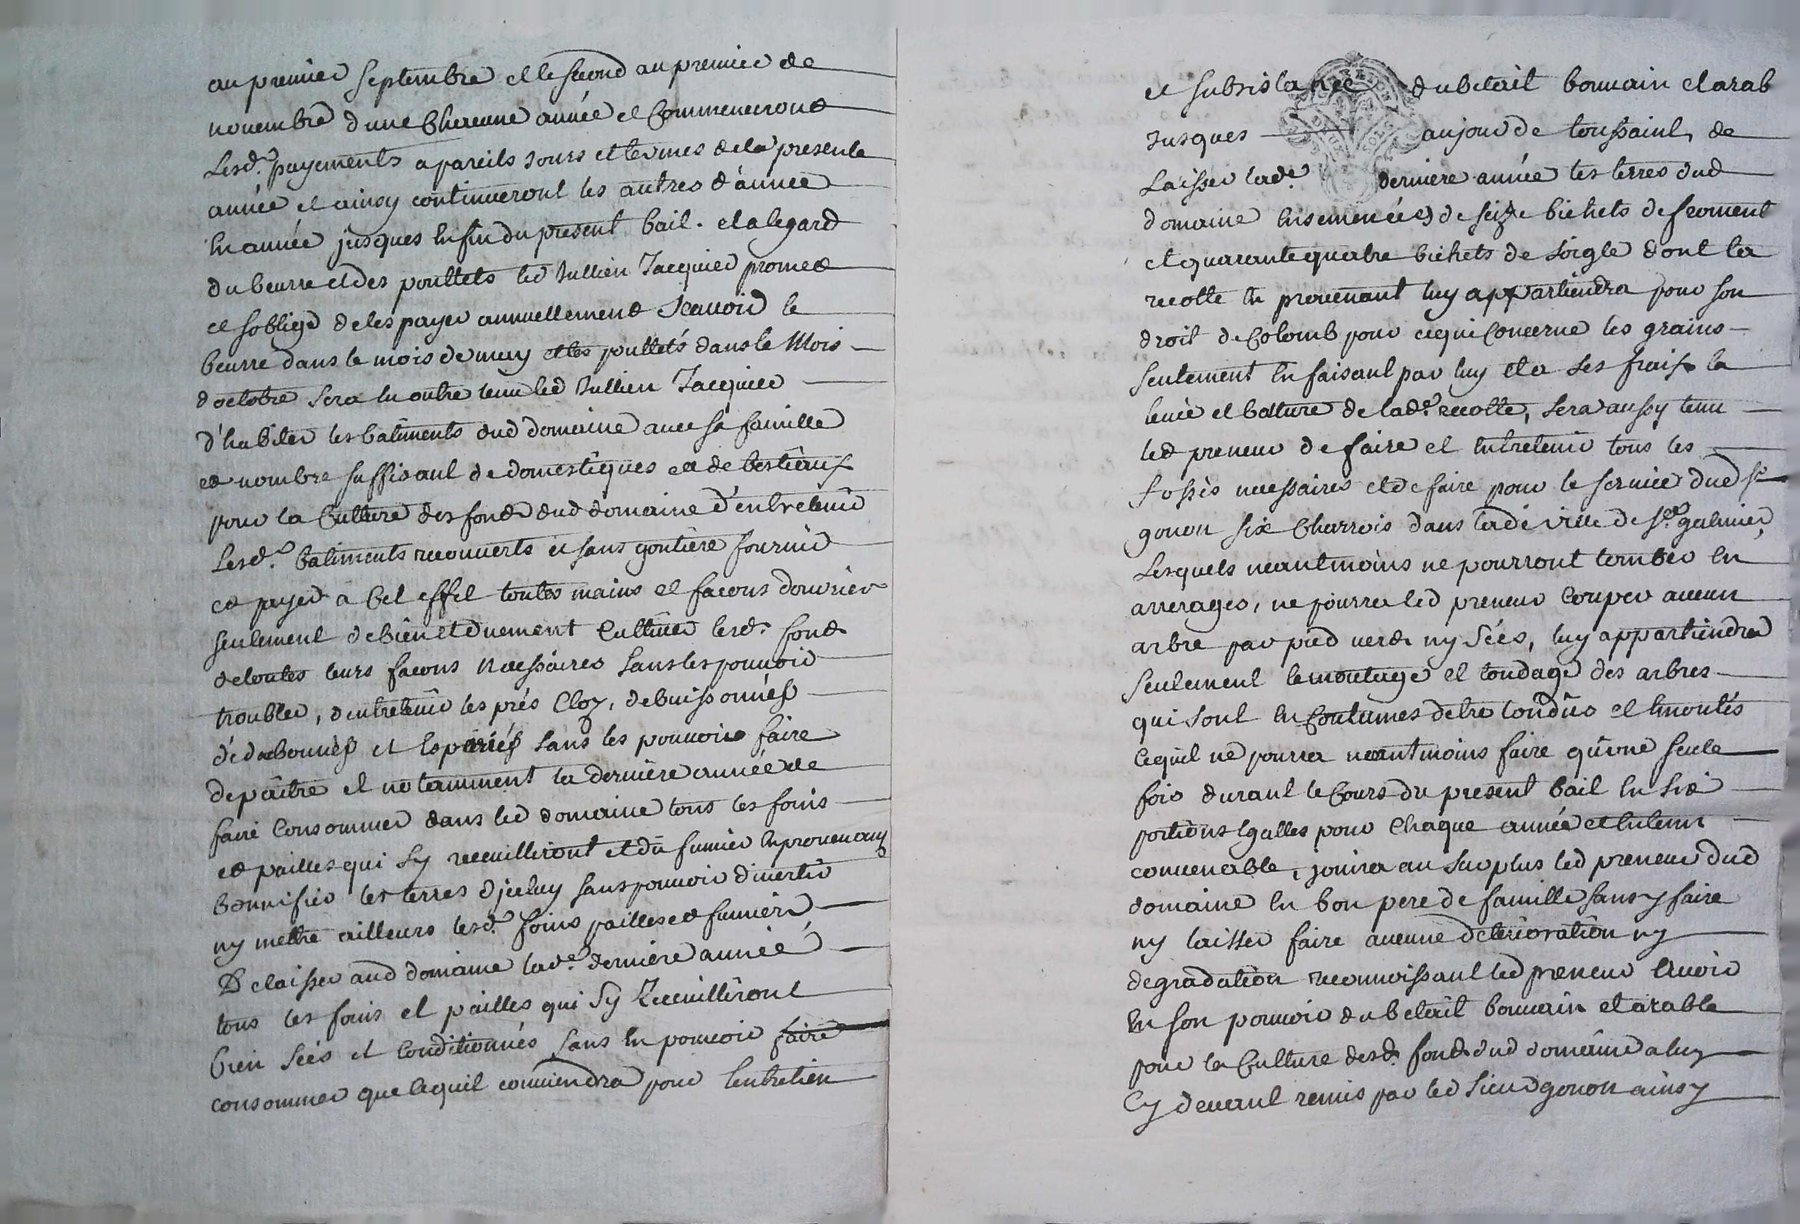 au premier septembre et le second au premier de
novembre d'une chacunne année et commenceront
Lesd. payements a pareils jours et termes de la presente
année et ainsy continueront les autres d'année
en année jusques en fin du present bail. et a legard
du beurre et des poullets led Jullien Jacquier promet
et s'oblige de les payer annuellement Scavoir le
beurre dans le mois de may et les poullets dans le Mois
d'octobre sera en outre tenu led Jullien Jacquier
d'habiter les batiments dud domaine avec sa famille
et nombre suffisant de domestiques et de bestiaux
pour la Culture des fonds dud domaine d'entretenir
Lesd. batiments recouverts et sans goutiere fournir
et payer a Cet effet toutes mains et facons d'ouvrier
seulement de bien et duement Cultiver lesd. fonds
de toutes leurs facons necessaires sans les pouvoir
troubler, d'entretenir les prés Cloz, debuissonnés
dédarbonnés et les sans les pouvoir faire
depaitre et notamment la derniere année de
faire consommer dans led domaine tous les foins
et pailles qui sy recueilliront et du fumier en provenant
bonnifier les terres d'jceluy sans pouvoir divertir
ny mettre ailleurs lesd. foins pailles et fumiers,
De laisser aud domaine lad.e derniere année
tous les foins et pailles qui sy Recueilliront
bien séés et conditionnés sans en pouvoir faire
consommer que ce quil conviendra pour lentretien
et subsistance du betail bouvain et arab
Jusques au jour de toussaint, de
Laisser lad.e derniere année les terres dud
domaine ensemencées de seize bichets de froment
et quarante quatre bichets de soigle dont la
recolte en provenant luy appartiendra pour son
droit de Colomb pour ce qui Concerne les grains
seulement en faisant par luy et a ses frais la
levée et batture de lad.e recolte, sera aussy tenu
led preneur de faire et entretenir tous les
fossés necessaires et de faire pour le service dud sr
gonon six Charrois dans lade ville de St galmier,
Lesquels neantmoins ne pourront tomber en
arrerages, ne pourra led preneur Couper aucun
arbre par pied verd ny séés, luy appartiendra
seulement lemontage et tondage des arbres
qui sont en Coutumes detre tondus et emontés
Cequil ne pourra neantmoins faire qu'une seule
fois durant le Cours du present bail en six
portions Egalles pour Chaque année et en tems
convenable, jouira au surplus led preneur dud
domaine en bon pere de famille sans y faire
ny laisser faire aucune deterioration ny
degradation reconnoissant led preneur avoir
en son pouvoir du betail bouvain et arable
pour la Culture desd. fonds dud domaine a luy
Cy devant remis par led sieur gonon ainsy